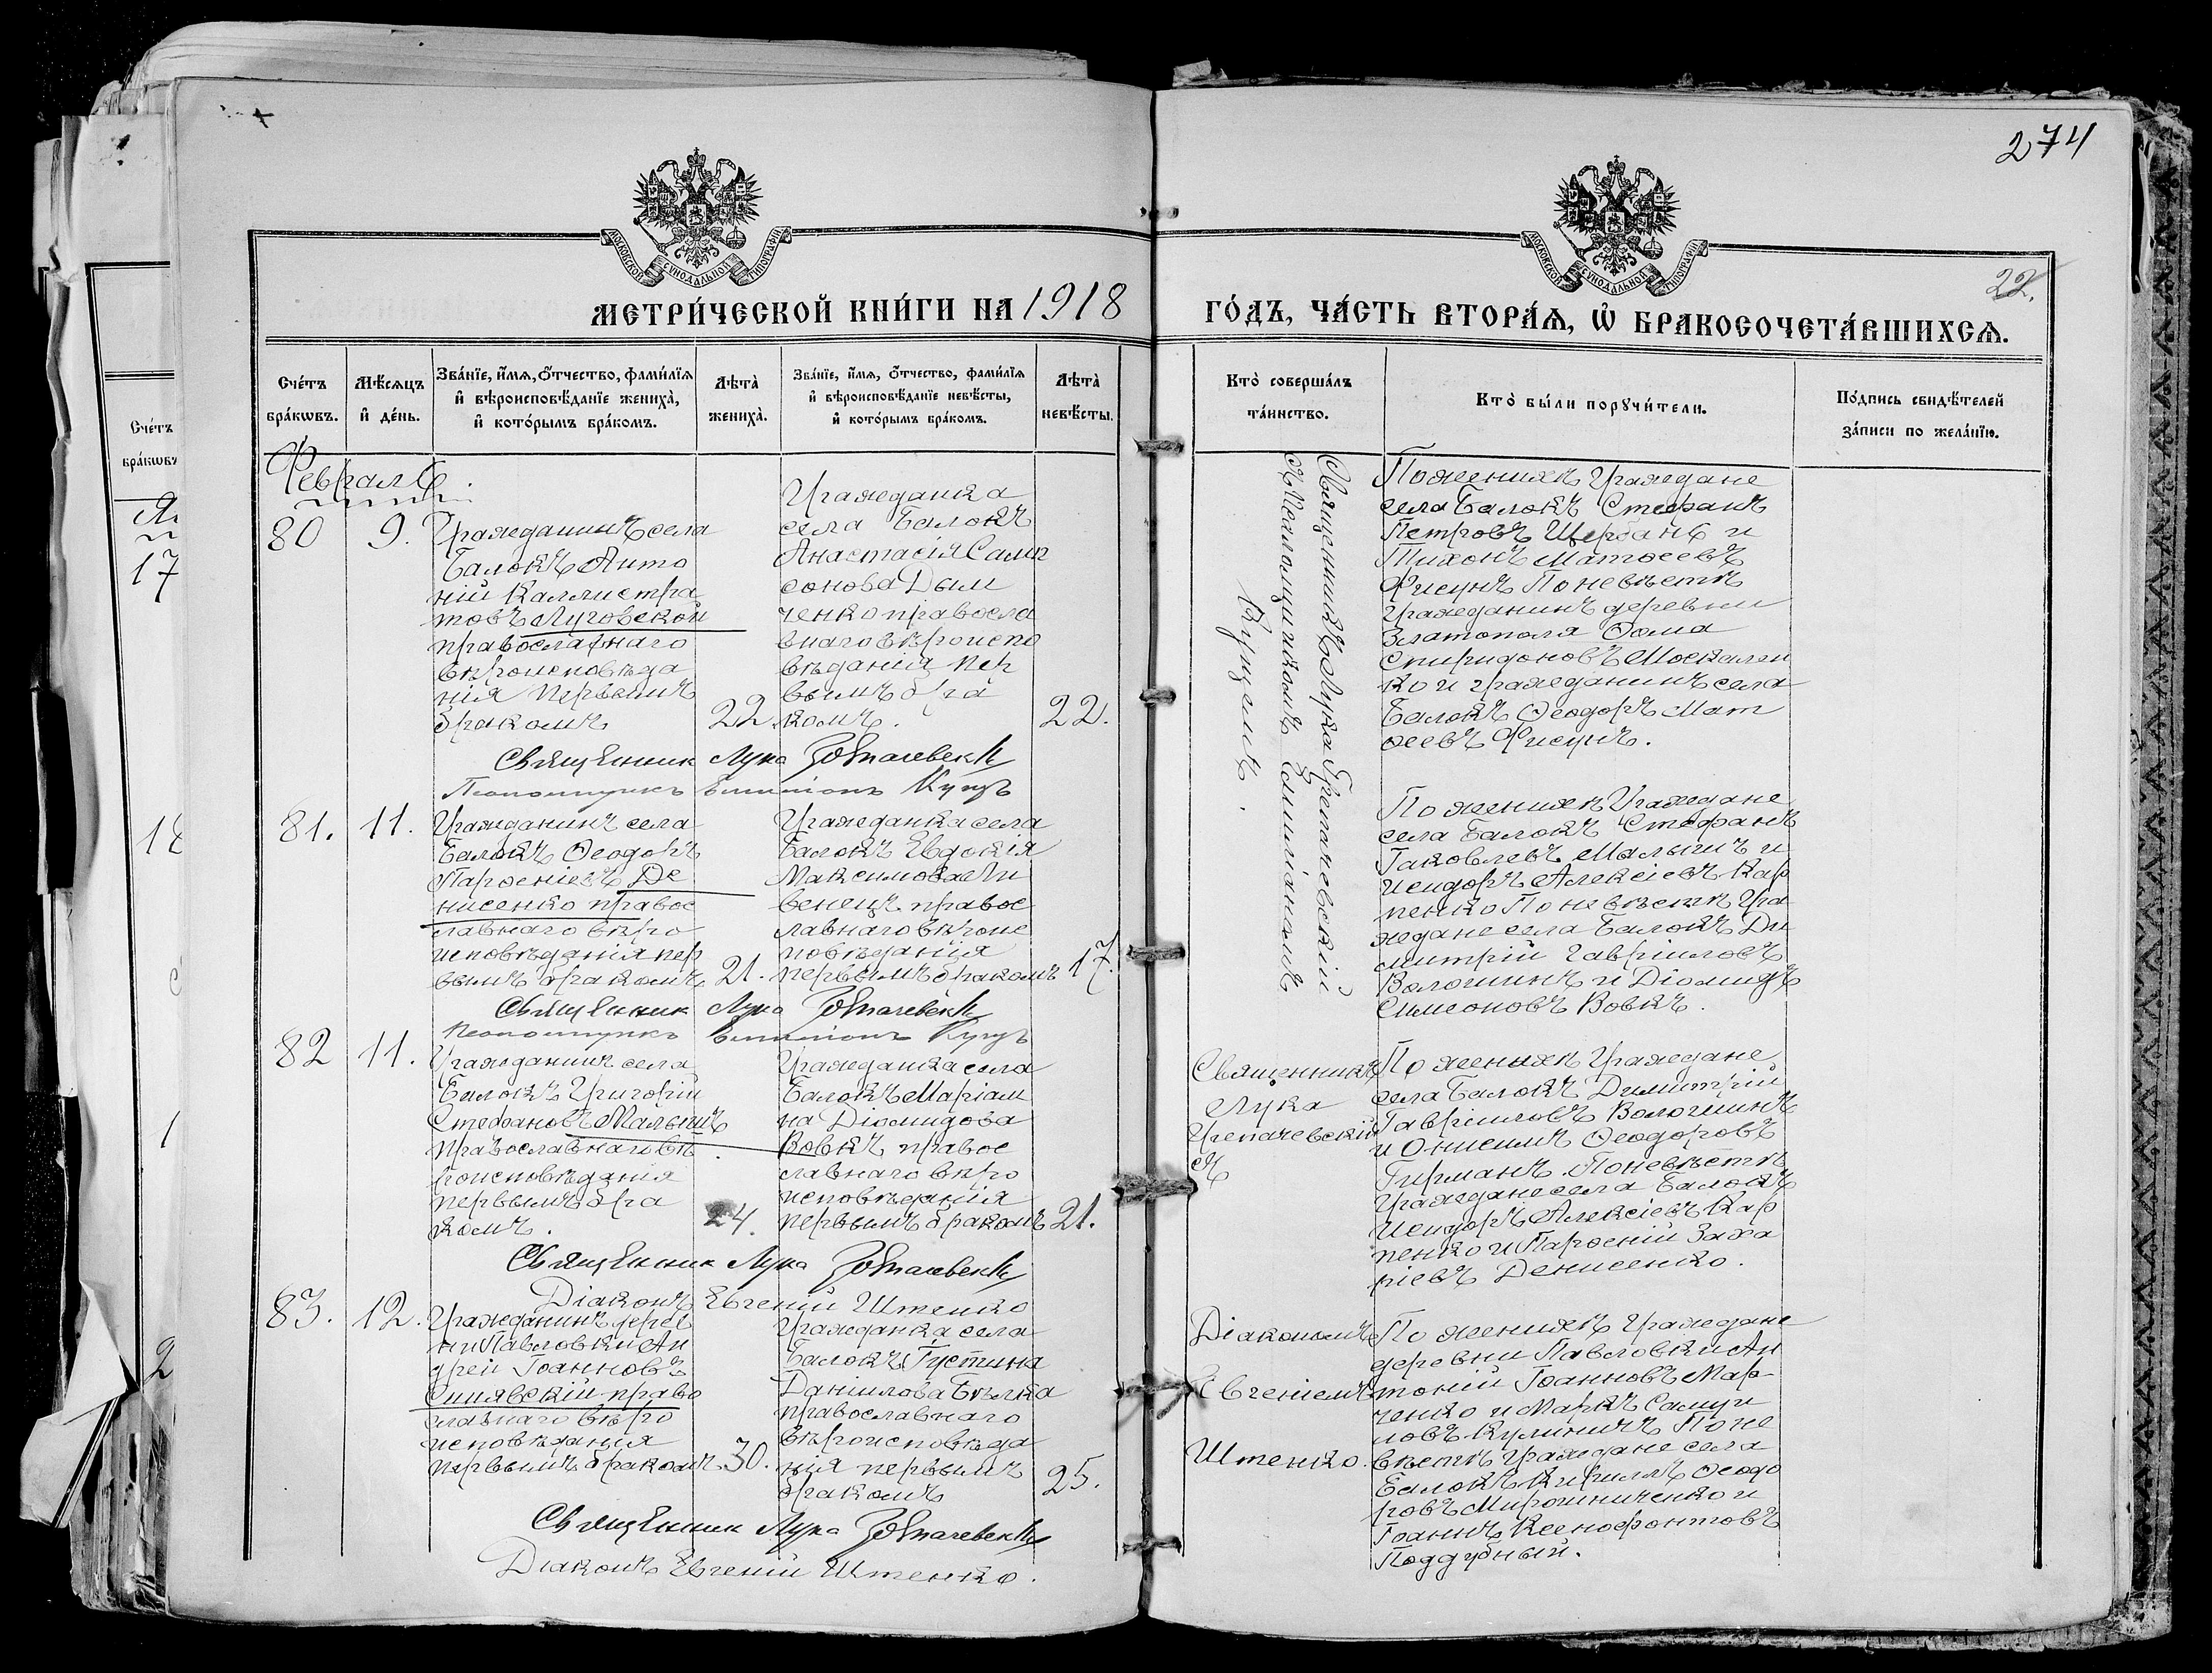 274
22.
МОСКОВСКОЙ СѴНОДАЛЬНОЙ ТИПОГРАФІИ
МОСКОВСКОЙ СѴНОДАЛЬНОЙ ТИПОГРАФІИ
МЕТРИ́ЧЕСКОЙ КНИ́ГИ НА 1918
ГО́ДЪ, ЧА́СТЬ ВТОРА́Ѧ, Ѽ БРАКОСОЧЕТА́ВШИХСѦ.
Сче́тъ
бра́кѡвъ.
Мѣ́сяцъ
и҆ де́нь.
Зва́нїе, и҆́мѧ, ѻ҆́тчество, фами́лїѧ
и҆ вѣроисповѣ́данїе жениха̀,
и҆ кото́рымъ бра́комъ.
Лѣта̀
жениха̀.
Зва́нїе, и҆́мѧ, ѻ҆́тчество, фами́лїѧ
и҆ вѣроисповѣ́данїе невѣ́сты,
и҆ кото́рымъ бра́комъ.
Лѣта̀
невѣ́сты.
Кто̀ соверша́лъ
та́инство.
Кто̀ бы́ли порꙋчи́тели.
По́дпись свидѣ́телей
за́писи по жела́нїю.
Сче́тъ
бра́кѡвъ
17
1
2
Февраль.
80
9.
Гражданинъ села
Балокъ Анто
ній Каллистра
товъ Луговской
православнаго
вѣроисповѣда
нія первымъ
бракомъ
22.
Гражданка
села Балокъ
Анастасія Самп
сонова Дым
ченко правосла
внаго вѣроиспо
вѣданія пер
вымъ бра
комъ.
22.
Священникъ Лука Грепачевскій
съ Псаломщикомъ Емиліаномъ
Куцемъ.
По женихѣ Граждане
села Балокъ Стефанъ
Петровъ Щербань и
Тихонъ Матѳеевъ
Фисунъ По невѣстѣ
гражданинъ деревни
Златополя Ѳома
Спиридоновъ Москален
ко и гражданинъ села
Балокъ Ѳеодоръ Мат
ѳеевъ Фисунъ.
Священник Лука
Псаломщикъ Куцъ
81.
11.
Гражданинъ села
Балокъ Ѳеодоръ
Парѳеніевъ Де
нисенко правос
лавнаго вѣро
исповѣданія пер
вымъ бракомъ
21.
Гражданка села
Балокъ Евдокія
Максимова Ли
венецъ правос
лавнаго вѣроис
повѣданія
первымъ бракомъ
17.
По женихѣ Граждане
села Балокъ Стефанъ
Іаковлевъ Малышъ и
Исидоръ Алексіевъ Кар
пенко По невѣстѣ Гра
ждане села Балокъ Ди
митрій Гавріиловъ
Волошинъ и Діомидъ
Симеоновъ Вовкъ.
Священник Лука
Псаломщикъ Куцъ
82
11.
Гражданинъ села
Балокъ Григорій
Стефановъ Малышъ
православнаго вѣ
роисповѣданія
первымъ бра
комъ.
24.
Гражданка села
Балокъ Маріам
на Діомидова
Вовкъ правос
лавнаго вѣро
исповѣданія
первымъ бракомъ
21.
Священникъ
Лука
Грепачевскій
съ
По женихѣ Граждане
села Балокъ Димитрій
Гавріиловъ Волошинъ
и Онисимъ Ѳеодоровъ
Гирманъ. По невѣстѣ
Граждане села Балокъ
Исидоръ Алексіевъ Кар
пенко и Парѳеній Заха
ріевъ Денисенко.
Священник Лука
Діаконъ Евгеній Штенко
83.
12.
Гражданинъ дерев
ни Павловки Ан
дрей Іоанновъ
Синявскій право
славнаго вѣро
исповѣданія
первымъ бракомъ
30.
Гражданка села
Балокъ Іустина
Даніилова Бѣлка
православнаго
вѣроисповѣда
нія первымъ
бракомъ
25.
Діакономъ
Евгеніемъ
Штенко.
По женихѣ Граждане
деревни Павловки Ан
тоній Іоанновъ Мар-
ченко и Маркъ Самуи
ловъ Кулиничъ По не
вѣстѣ Граждане села
Балокъ Кириллъ Ѳеодо
ровъ Мирошниченко и
Іоаннъ Ксенофонтовъ
Поддубный.
Священник Лука
Діаконъ Евгеній Штенко.